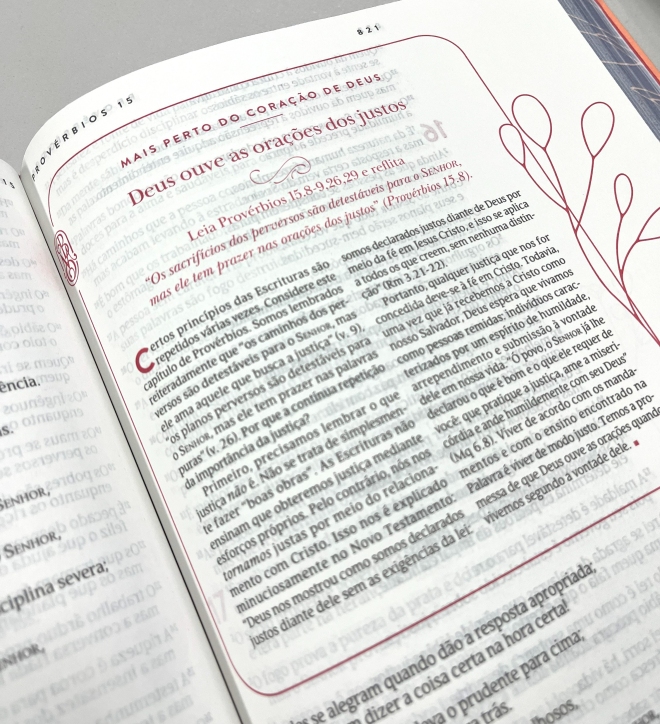 821
PROVÉRBIOS 15
MAIS PERTO DO CORAÇÃO DE DEUS
Deus ouve as orações dos justos
Leia Provérbios 15.8-9,26,29 e reflita
"Os sacrifícios dos perversos são detestáveis para o SENHOR,
mas ele tem prazer nas orações dos justos" (Provérbios 15.8).
Certos princípios das Escrituras são
repetidos várias vezes. Considere este
capítulo de Provérbios. Somos lembrados
reiteradamente que "os caminhos dos per-
versos são detestáveis para o SENHOR, mas
ele ama aquele que busca a justiça" (v. 9),
"os planos perversos são detestáveis para
o SENHOR, mas ele tem prazer nas palavras
puras" (v. 26). Por que a contínua repetição
da importância da justiça?
Primeiro, precisamos lembrar o que
justiça não é. Não se trata de simplesmen-
te fazer "boas obras". As Escrituras não
ensinam que obteremos justiça mediante
esforços próprios. Pelo contrário, nós nos
tornamos justas por meio do relaciona-
mento com Cristo. Isso nos é explicado
minuciosamente no Novo Testamento:
"Deus nos mostrou como somos declarados
justos diante dele sem as exigências da lei:
somos declarados justos diante de Deus por
meio da fé em Jesus Cristo, e isso se aplica
a todos os que creem, sem nenhuma distin-
ção" (Rm 3.21-22).
Portanto, qualquer justiça que nos for
concedida deve-se à fé em Cristo. Todavia,
uma vez que já recebemos a Cristo como
nosso Salvador, Deus espera que vivamos
como pessoas remidas: indivíduos carac-
terizados por um espírito de humildade,
arrependimento e submissão à vontade
dele em nossa vida. "Ó povo, o SENHOR já lhe
declarou o que é bom e o que ele requer de
você: que pratique a justiça, ame a miseri-
córdia e ande humildemente com seu Deus"
(Mq 6.8). Viver de acordo com os manda-
mentos e com o ensino encontrado na
Palavra é viver de modo justo. Temos a pro-
messa de que Deus ouve as orações quando
vivemos segundo a vontade dele.
se alegram quando dão a resposta apropriada;
dizer a coisa certa na hora certa!
va o prudente para cima,
trás.
ência.
s.
SENHOR,
SENHOR,
ciplina severa;
NHOR,